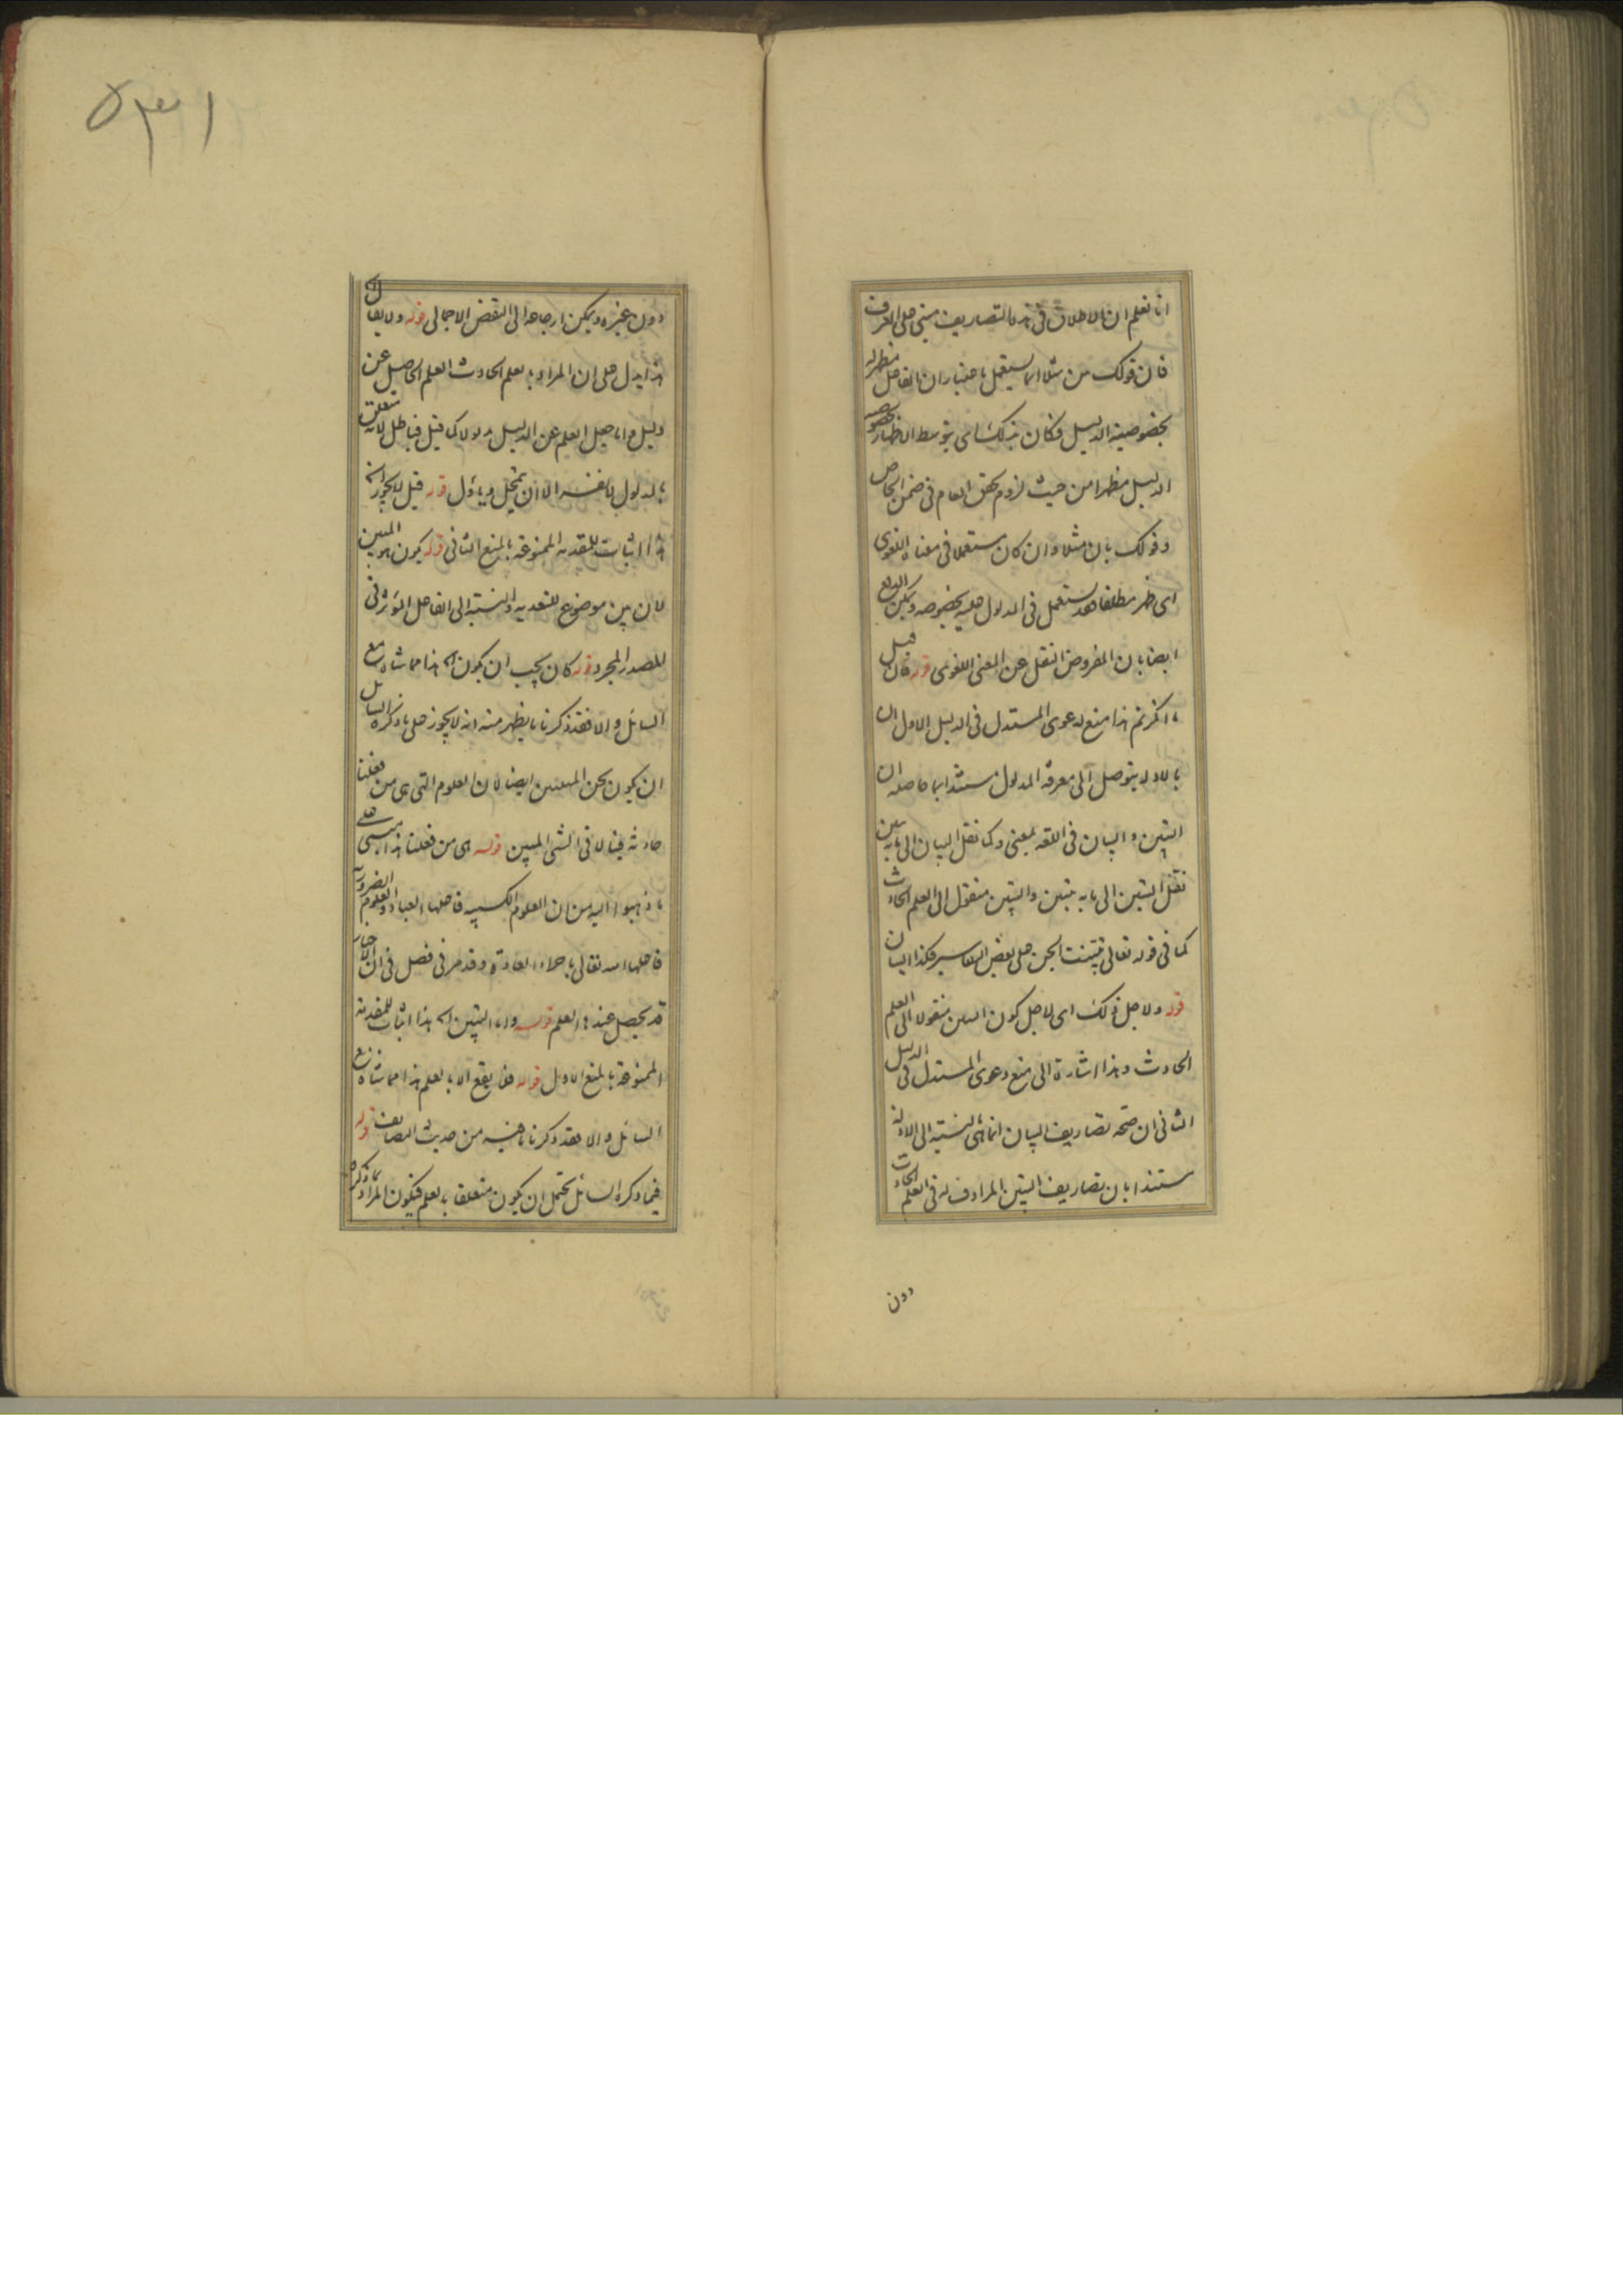 انا نعلم ان الاطلاق في هذه التصاريف مبني على العرف
فان قولك من مثلا انما يستعمل باعتبار ان الفاعل مظهر له
بخصوصية الدليل فكان بذلك اي بتوسط الاظهار بخصوصية
الدليل مظهرا من حيث لزوم تحقق العام في ضمن الخاص
وقولك بان مثلا وان كان مستعملا في معناه اللغوي
اى ظهر مطلقا فقد يستعمل في المدلول عليه بخصوصه ويمكن الدفع
ايضا بان المفروض النقل عن المعنى اللغوى قوله فان قيل
ما انكرتم هذا منع لدعوى المستدل في الدليل الاول ان
بالادلة يتوصل الى معرفة المدلول مستندا بما حاصله ان
التبين والبيان في اللغة بمعنى وكما نقل البيان الى ما به يتبين
نقل التبين الى ما به يتبين والتبين منقول الى العلم الحادث
كما في قوله تعالى تبينت الجن على بعض التفاسير فكذا البيان
قوله ولاجل ذلك اى لاجل كون التبين منقولا الى العلم
الحادث وهذا اشارة الى منع دعوى المستدل في الدليل
الثانى ان صحة تصاريف البيان انما هى بالنسبة الى الادلة
مستندا بان تصاريف التبين المرادف له في العلم الحادث
دون
٥٣١
دون غيره ويمكن ارجاعه الى النقض الاجمالى قوله ولا يقال
هذا يدل على ان المراد بالعلم الحادث العلم الحاصل عن
دليل واما جعل العلم عن الدليل مدلولا كما قيل فباطل لانه متعلق
بالمدلول لا نفسه الا ان يتمحل ويأول قوله قيل لا يجوز انه
هذا اثبات للمقدمة الممنوعة بالمنع الثانى قوله يكون هو المبين
لان بين موضوع للتعدية والنسبة الى الفاعل المؤثر في
المصدر المجرد قوله كان يجب ان يكون اه هذا مماشاة مع
السائل والا فقد ذكرنا ما يظهر منه انه لا يجوز على ما ذكره السائل
ان يكون نحن المبينين ايضا لان العلوم التى هى من فعلنا
حادثة فينا لا في الشئ المبين قوله هى من فعلنا هذا مبنى على
ما ذهبوا اليه من ان العلوم الكسبية فاعلها العباد والعلوم الضرورية
فاعلها الله تعالى باجراء العادة وقد مر في فصل في ان الاخبار
قد يحصل عندها العلم قوله واما التبين اه هذا اثبات للمقدمة
الممنوعة بالمنع الاول قوله فلا يقع الا بالعلم هذا مماشاة مع
السائل والا فقد ذكرنا ما فيه من حديث التضايف قوله
فيما ذكره السائل يحتمل ان يكون متعلقا بالعلم فيكون المراد بما ذكره